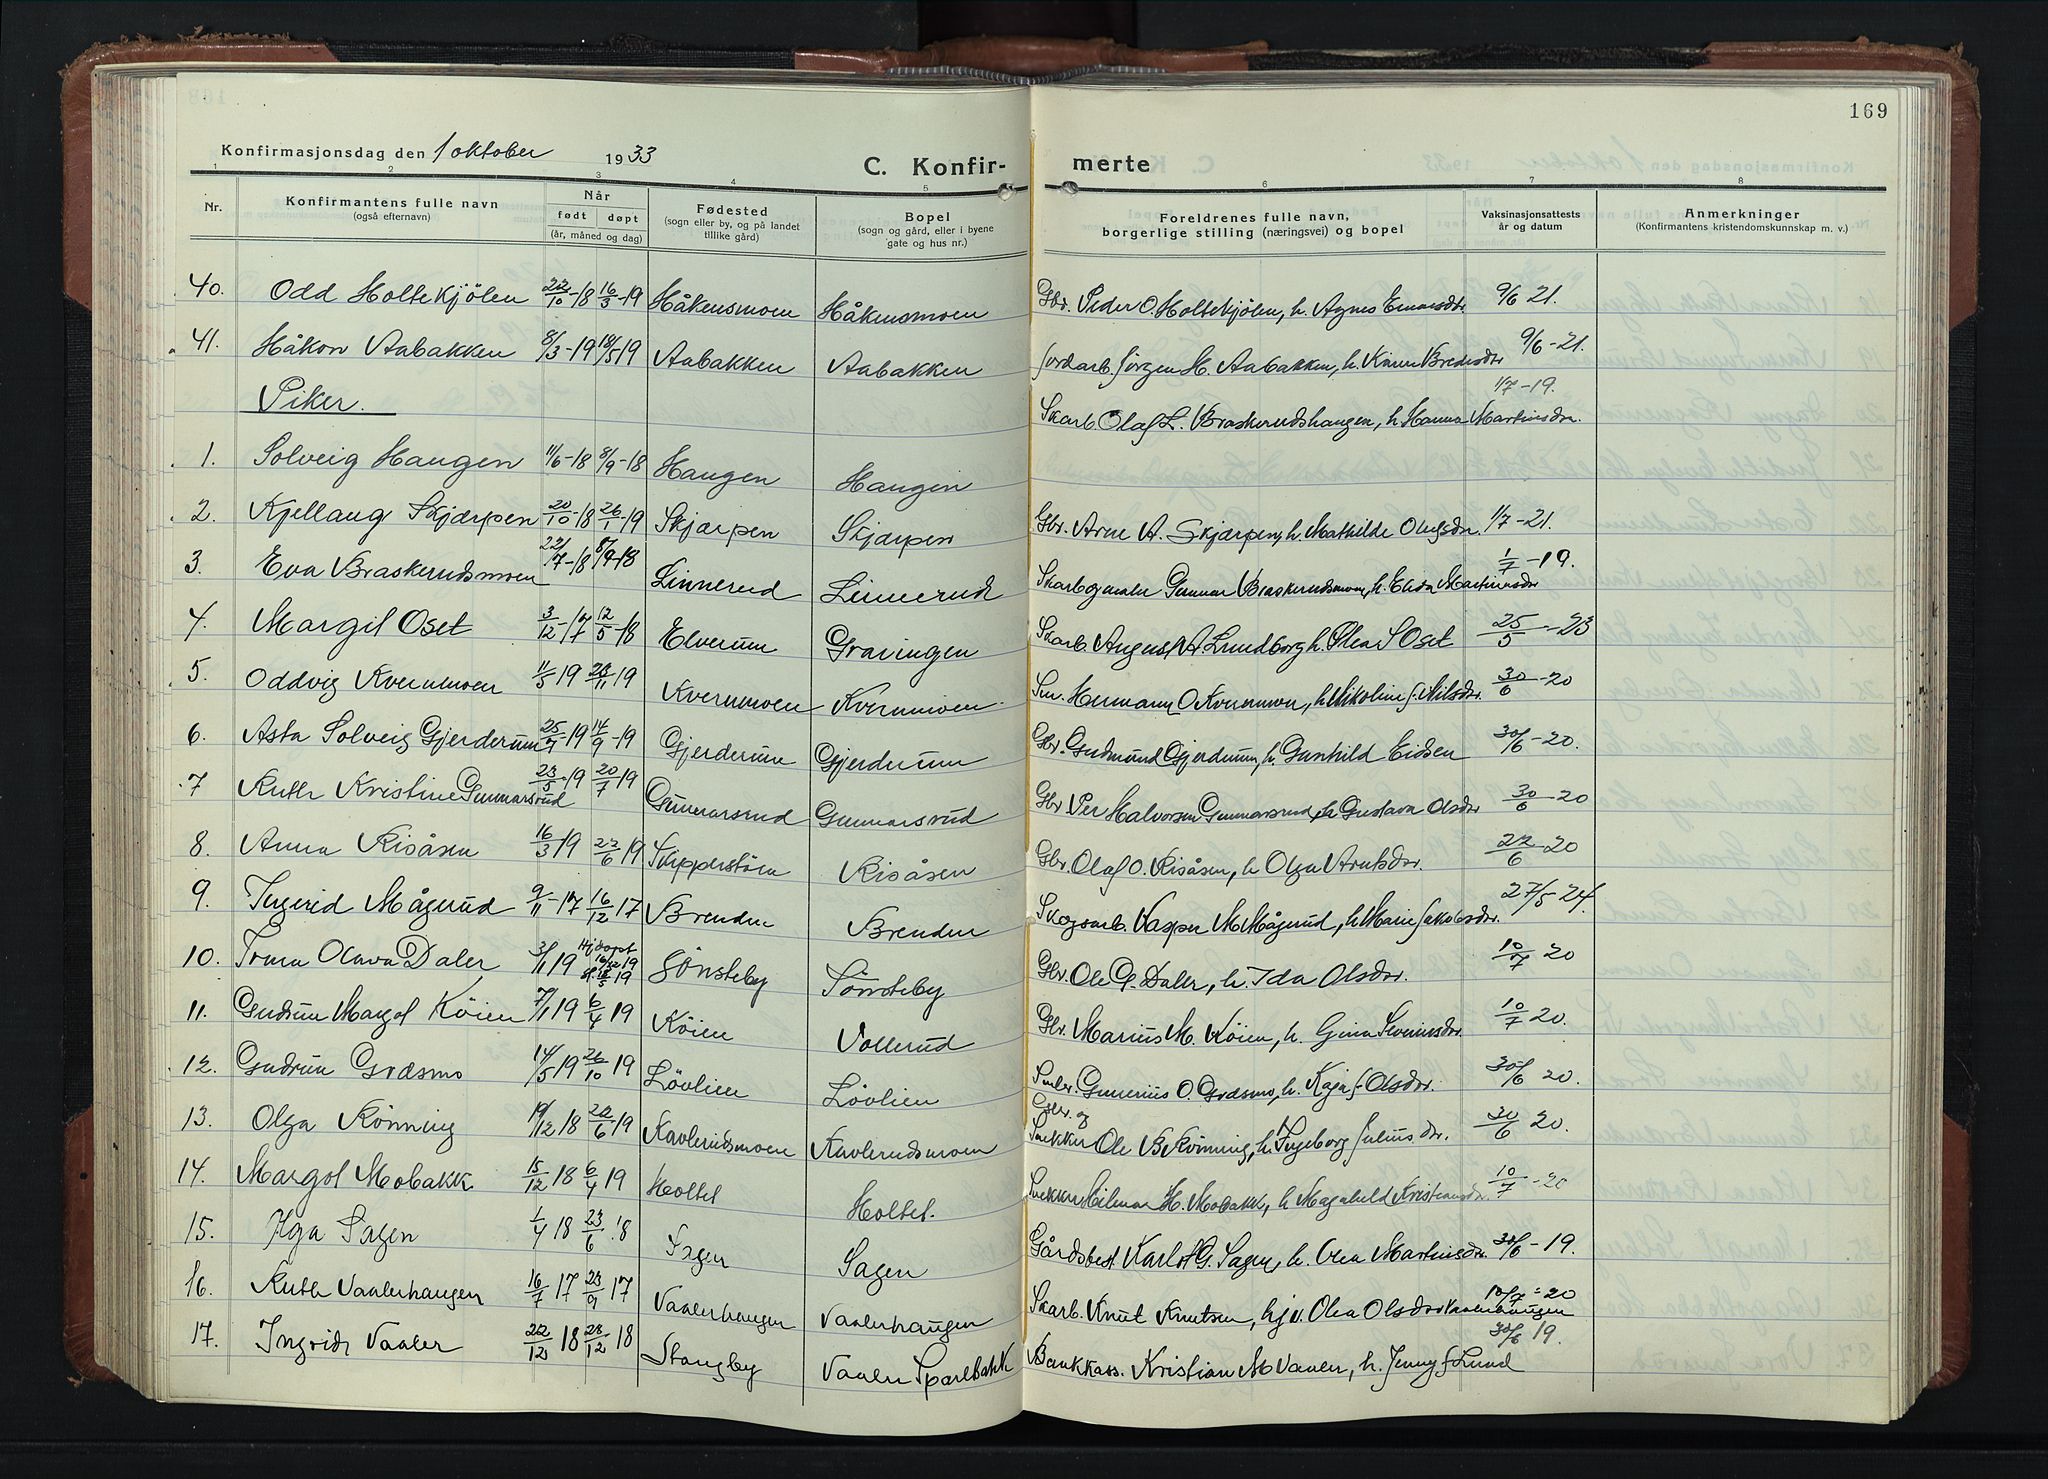 169
Konfirmasjonsdag den 1 oktober 1933
C. Konfir- merte
1 2 3 4 5 6 7 8
Nr. Konfirmantens fulle navn (også efternavn) Når født døpt (år, måned og dag) Fødested (sogn eller by, og på landet tillike gård) Bopel (sogn og gård, eller i byene gate og hus nr.) Foreldrenes fulle navn, borgerlige stilling (næringsvei) og bopel Vaksinasjonsattests år og datum Anmerkninger (Konfirmantens kristendomskunnskap m. v.)
40. Odd Holtekjölen 22/10-18 16/3-19 Håkensmoen Håkensmoen Gbr. Peder O. Holtekjölen, h. Agnes 9/6 21.
41. Håkon Aabakken 8/3-19 18/5 19 Aabakken Aabakken Jordarb. Jörgen H. Aabakken, h. Karen 9/6-21.
Piker.
1. Solveig Haugen 11/6-18 8/9-18 Haugen Haugen Skarb. Olaf L. Braskerudshaugen, h. Hanna Martinsdr. 1/7-19.
2. Kjellaug Skjærpen 20/10-18 26/1-19 Skjærpen Skjærpen Gbr. Arne A. Skjærpen, h. Mathilde Olufsdr. 1/7-21.
3. Eva Braskerudsmoen 22/7-18 8/9-18 Linnerud Linnerud Skarb og maler Gunnar Braskerudsmoen, h. Elida Martinusdr 1/7-19.
4. Margit Oset 3/12-17 12/5-18 Elverum Gravingen Skarb. August A. Lundborg h. Olea S Oset 25/5-23
5. Oddvig Kvernmoen 11/5 19 23/11 19 Kvernmoen Kvernmoen Sm. Hermann O Kvernmoen, h. Nikoline J. Nilsdr. 30/6-20
6. Asta Solveig Gjerderum 25/7-19 14/9-19 Gjerderum Gjerderum Gbr. Gudmund Gjerderum, h. Gunhild Eidsen 30/6-20.
7 Ruth Kristine Gunnarsrud 23/5 19 20/7 19 Gunnarsrud Gunnarsrud Gbr Per Halvorsen Gunnarsrud, h Gustava Olsdr 30/6-20
8. Anna Risåsen 16/3 19 22/6 19 Skipperstöen Risåsen Gbr. Olaf O. Risåsen, h Olga Arntsdr. 22/6-20
9. Ingerid Mågerud 9/11-17 16/12 17 Brenden Brenden Skogsarb. Kasper M Mågerud, h Marie Jakobsdr. 27/5-24.
10. Irma Olava Daler 3/1 19 Hjdöpt Sönsteby Sönsteby Gbr. Ole O. Daler, h. Ida Olsdr. 10/7 20
11. Gudrun Margot Köien 7/1 19 6/4 19 Köien Vollerud Gbr. Marius M. Köien, h. Gina Severinsdr. 10/7 20.
12. Gudrun Grasmo 14/5 19 26/10 19 Lövlien Lövlien Smbr. Gunerius O. Grasmo, h. Kaja J. Olsdr. 30/6 20.
13. Olga Rönning 19/12 18 22/6 19 Kavlerudsmoen Kavlerudsmoen Gbr. og Snekker Ole B Rönning, h. Ingeborg Julius dr. 30/6 20.
14. Margot Mobakk 15/12 18 6/4 19 Holtet Holtet. Snekker Hilmar H. Mobakk, h Magnhild Kristiansdr. 10/7-20
15. Olga Sagen 1/4 18 23/6 18 Sagen Sagen Gårdsbest. Karl G. Sagen, h. Olea Martinsdr. 30/6-19.
16. Ruth Vaalerhaugen 16/7 17 23/9 17 Vaalerhaugen Vaalerhaugen Skarb. Knut Knutsen, hjv. Olea Olsdr Vaalerhaugen 10/7-20
17. Ingrid Vaaler 22/12 18 28/12 18 Stangby Vaaler Sparebakk Bankkass. Kristian M Vaaler, h. Jenny J Lund 30/6 19.